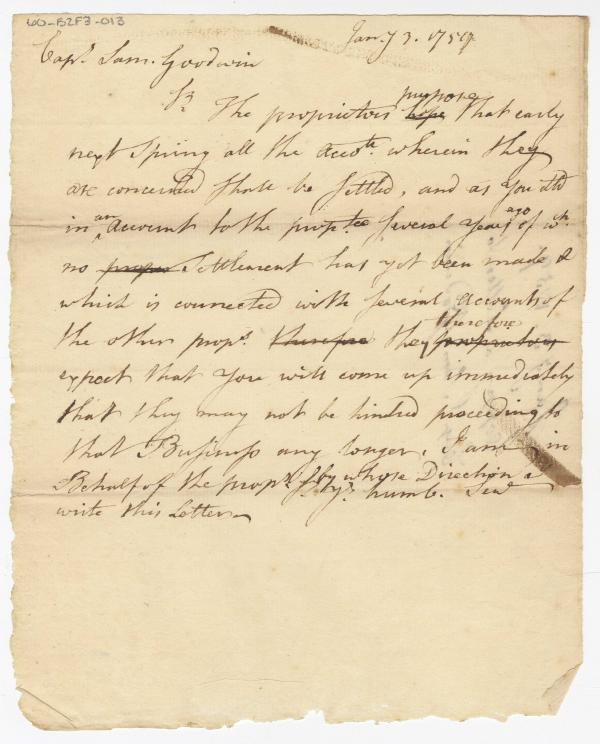 60-B2F3-013
Janry 3. 1754
Capt. Sam. Goodwin
Sr. The proprietors purpose hope that early
next Spring all the Accots. wherein they
are concerned shall be settled, and as you
in an Account to the propr. several years ago of wch.
no proper settlement has yet been made &
which is connected with several accounts of
the other proprs. therefore they proprietors therefore
expect that you will come up immediately
that they may not be hindred proceeding to
that Business any longer. I am in
Behalf of the proprs. & by whose Direction I
write this Letter yr. humb. Servt